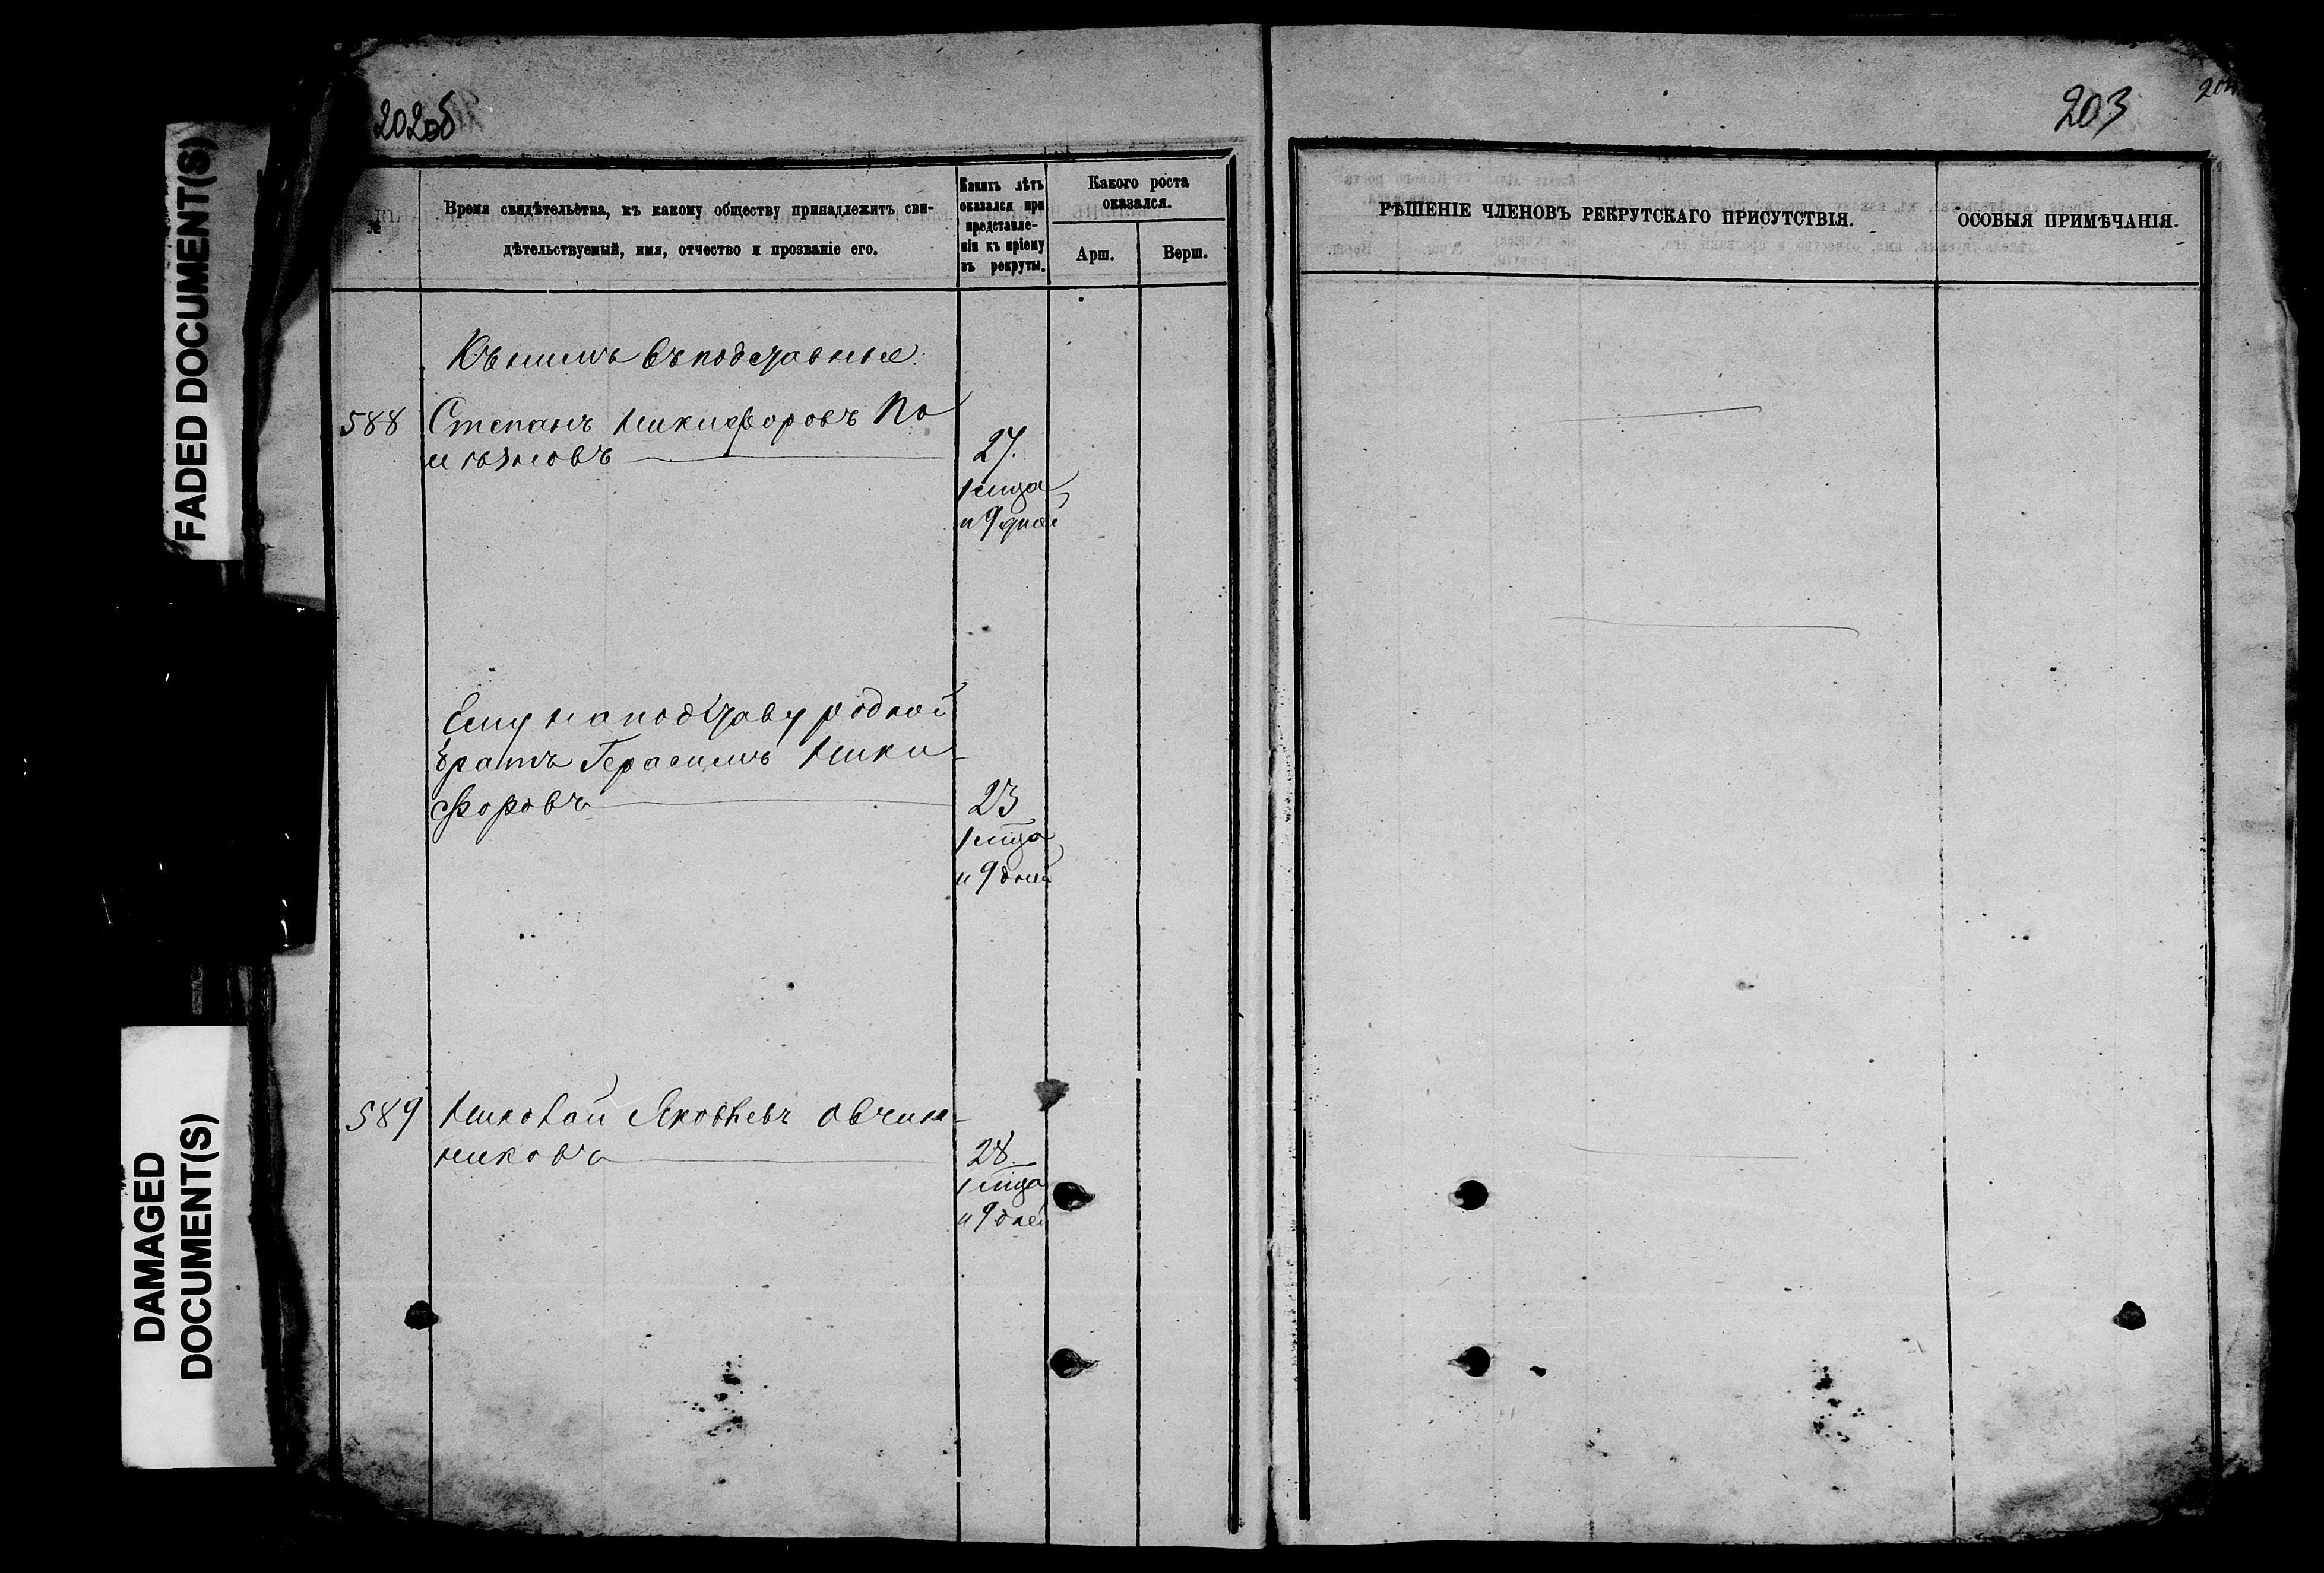 FADED DOCUMENT(S)
DAMAGED
DOCUMENT(S)
202об
№
Время свидѣтельства, къ какому обществу принадлежитъ сви-
дѣтельствуемый, имя, отчество и прозваніе его.
Какихъ лѣтъ
оказался при
представле-
ніи къ пріему
въ рекруты.
Какого роста
оказался.
Арш.
Верш.
Къ нимъ въ подставные:
588 Степанъ Никифоровъ По
27.
1 мца
и 9 дней
Ему на подставу родной
братъ Герасимъ Ники-
форовъ
23
1 мца
и 9 дней
589 Николай Яковлевъ Овчин-
никовъ
28.
1 мца
и 9 дней
203
204
РѢШЕНІЕ ЧЛЕНОВЪ РЕКРУТСКАГО ПРИСУТСТВІЯ.
ОСОБЫЯ ПРИМѢЧАНІЯ.